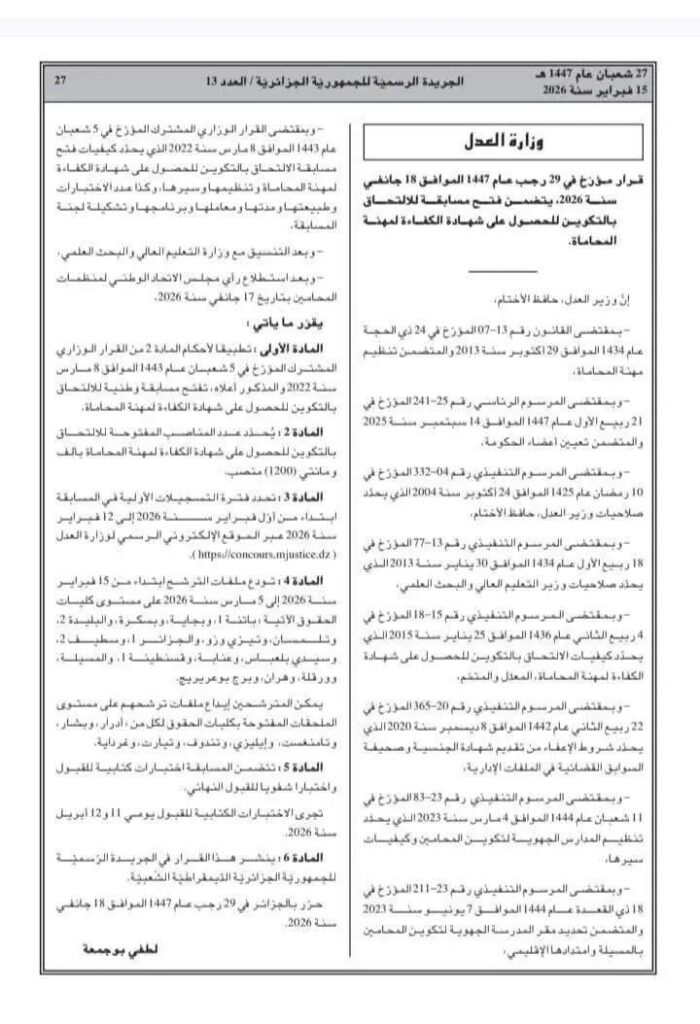 27 شعبان عام 1447 هـ
15 فبراير سنة 2026
الجريدة الرسمية للجمهورية الجزائرية / العدد 13
27
وزارة العدل
قرار مؤرخ في 29 رجب عام 1447 الموافق 18 جانفي
سنة 2026، يتضمن فتح مسابقة للالتحاق
بالتكوين للحصول على شهادة الكفاءة لمهنة
المحاماة.
إنّ وزير العدل، حافظ الأختام،
– بمقتضى القانون رقم 13-07 المؤرخ في 24 ذي الحجة
عام 1434 الموافق 29 أكتوبر سنة 2013 والمتضمن تنظيم
مهنة المحاماة،
– وبمقتضى المرسوم الرئاسي رقم 25-241 المؤرخ في
21 ربيع الأول عام 1447 الموافق 14 سبتمبر سنة 2025
والمتضمن تعيين أعضاء الحكومة،
– وبمقتضى المرسوم التنفيذي رقم 04-332 المؤرخ في
10 رمضان عام 1425 الموافق 24 أكتوبر سنة 2004 الذي يحدد
صلاحيات وزير العدل، حافظ الأختام،
– وبمقتضى المرسوم التنفيذي رقم 13-77 المؤرخ في
18 ربيع الأول عام 1434 الموافق 30 يناير سنة 2013 الذي
يحدد صلاحيات وزير التعليم العالي والبحث العلمي،
– وبمقتضى المرسوم التنفيذي رقم 15-18 المؤرخ في
4 ربيع الثاني عام 1436 الموافق 25 يناير سنة 2015 الذي
يحدد كيفيات الالتحاق بالتكوين للحصول على شهادة
الكفاءة لمهنة المحاماة، المعدل والمتمّم،
– وبمقتضى المرسوم التنفيذي رقم 20-365 المؤرخ في
22 ربيع الثاني عام 1442 الموافق 8 ديسمبر سنة 2020 الذي
يحدد شروط الإعفاء من تقديم شهادة الجنسية وصحيفة
السوابق القضائية في الملفات الإدارية،
– وبمقتضى المرسوم التنفيذي رقم 23-83 المؤرخ في
11 شعبان عام 1444 الموافق 4 مارس سنة 2023 الذي يحدد
تنظيم المدارس الجهوية لتكوين المحامين وكيفيات
سيرها،
– وبمقتضى المرسوم التنفيذي رقم 23-211 المؤرخ في
18 ذي القعدة عام 1444 الموافق 7 يونيو سنة 2023
والمتضمن تحديد مقر المدرسة الجهوية لتكوين المحامين
بالمسيلة وامتدادها الإقليمي،
– وبمقتضى القرار الوزاري المشترك المؤرخ في 5 شعبان
عام 1443 الموافق 8 مارس سنة 2022 الذي يحدد كيفيات فتح
مسابقة الالتحاق بالتكوين للحصول على شهادة الكفاءة
لمهنة المحاماة وتنظيمها وسيرها، وكذا عدد الاختبارات
وطبيعتها ومدتها ومعاملها وبرنامجها وتشكيلة لجنة
المسابقة،
– وبعد التنسيق مع وزارة التعليم العالي والبحث العلمي،
– وبعد استطلاع رأي مجلس الاتحاد الوطني لمنظمات
المحامين بتاريخ 17 جانفي سنة 2026،
يقرّر ما يأتي :
المادة الأولى : تطبيقا لأحكام المادة 2 من القرار الوزاري
المشترك المؤرخ في 5 شعبان عام 1443 الموافق 8 مارس
سنة 2022 والمذكور أعلاه، تفتح مسابقة وطنية للالتحاق
بالتكوين للحصول على شهادة الكفاءة لمهنة المحاماة.
المادة 2 : يُحدّد عدد المناصب المفتوحة للالتحاق
بالتكوين للحصول على شهادة الكفاءة لمهنة المحاماة بألف
ومائتي (1200) منصب.
المادة 3 : تحدد فترة التسجيلات الأولية في المسابقة
ابتداء من أول فبراير سنة 2026 إلى 12 فبراير
سنة 2026 عبر الموقع الإلكتروني الرسمي لوزارة العدل
(https://concours.mjustice.dz).
المادة 4 : تودع ملفات الترشح ابتداء من 15 فبراير
سنة 2026 إلى 5 مارس سنة 2026 على مستوى كليات
الحقوق الآتية : باتنة 1، وبجاية، وبسكرة، والبليدة 2،
وتلمسان، وتيزي وزو، والجزائر 1، وسطيف 2،
وسيدي بلعباس، وعنابة، وقسنطينة 1، والمسيلة،
وورقلة، وهران، وبرج بوعريريج.
يمكن المترشحين إيداع ملفات ترشحهم على مستوى
الملحقات المفتوحة بكليات الحقوق لكل من : أدرار، وبشار،
وتامنغست، وإيليزي، وتندوف، وتيارت، وغرداية.
المادة 5 : تتضمن المسابقة اختبارات كتابية للقبول
واختبارا شفويا للقبول النهائي.
تجرى الاختبارات الكتابية للقبول يومي 11 و12 أبريل
سنة 2026.
المادة 6 : ينشر هذا القرار في الجريدة الرّسميّة
للجمهوريّة الجزائريّة الدّيمقراطيّة الشّعبيّة.
حرّر بالجزائر في 29 رجب عام 1447 الموافق 18 جانفي
سنة 2026.
لطفي بوجمعة